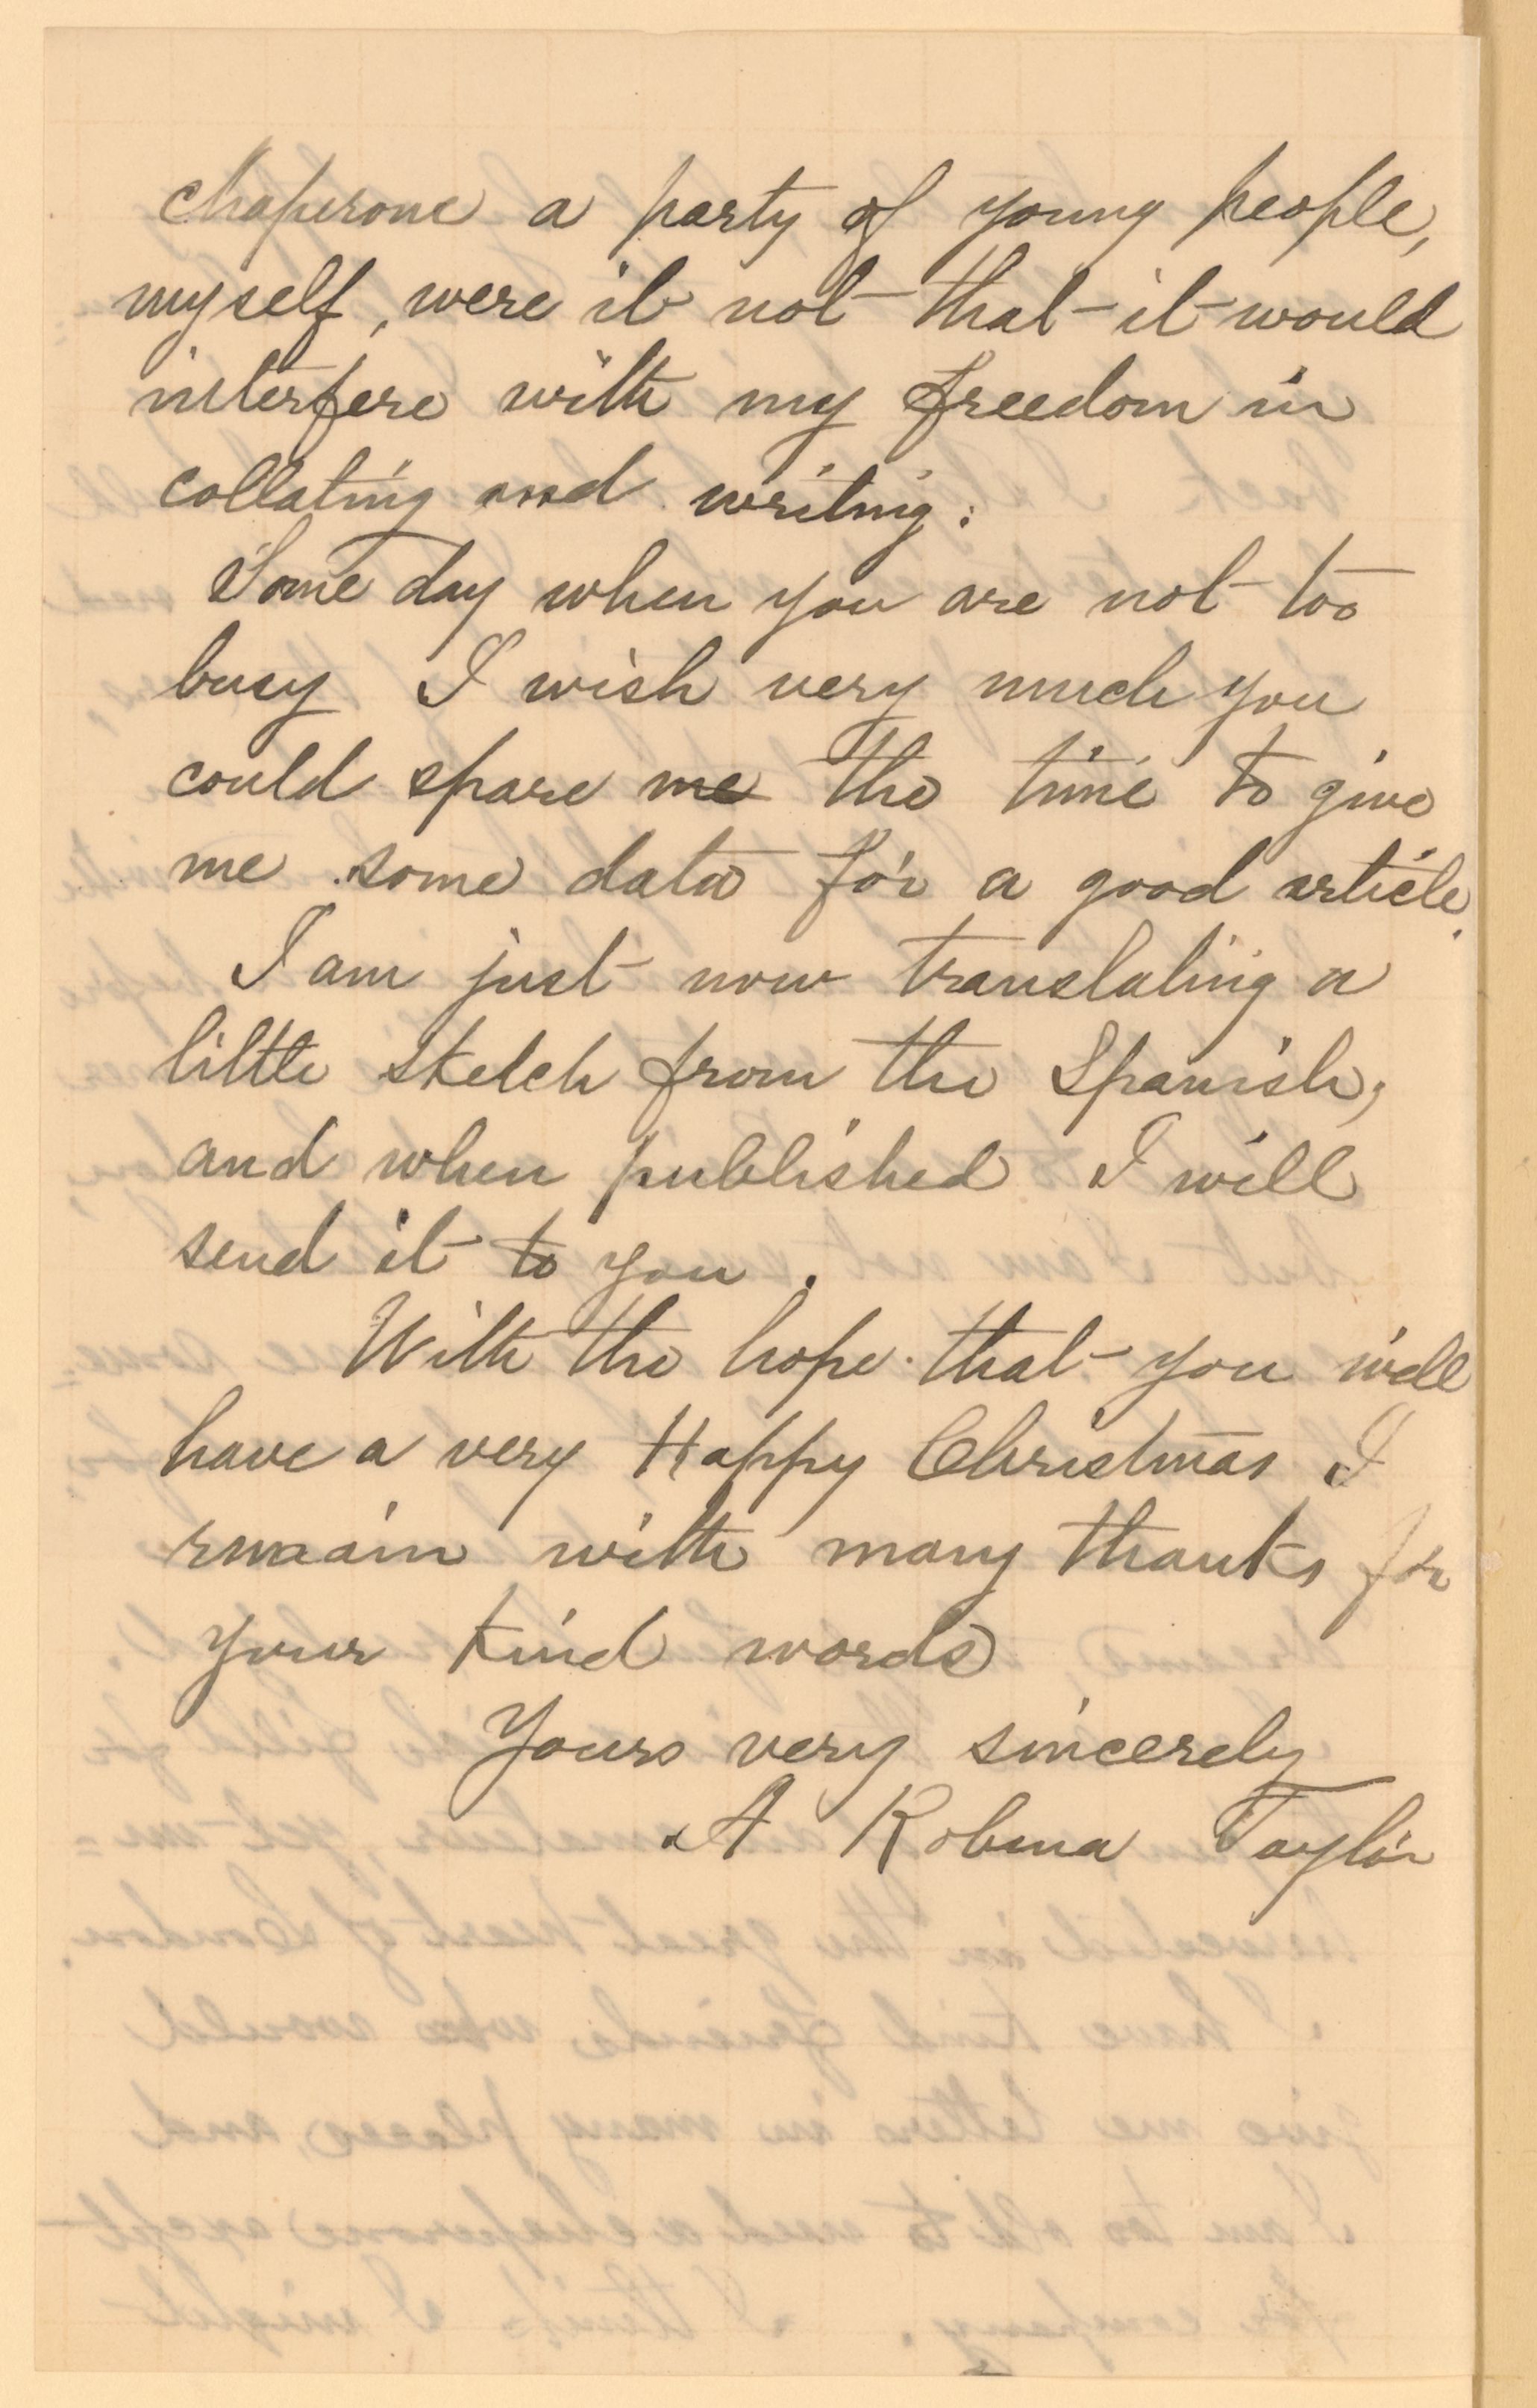 chaperone a party of young people,
myself, were it not that it would
interfere with my freedom in
collating and writing.
Some day when you are not too
busy I wish very much you
could spare me the time to give
me some data for a good article.
I am just now translating a
little sketch from the Spanish,
and when published I will
send it to you.
With the hope that you will
have a very Happy Christmas I
rmaain with many thanks for
your kind words
Yours very sincerely
A Robena Taylor